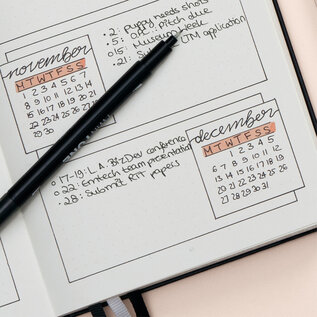 november
M T W T F S S
1 2 3 4 5 6 7
8 9 10 11 12 13 14
15 16 17 18 19 20 21
22 23 24 25 26 27 28
29 30
2: puppy needs shots
5: pitch due
15: Museum Week
21: application
december
M T W T F S S
1 2 3 4 5
6 7 8 9 10 11 12
13 14 15 16 17 18 19
20 21 22 23 24 25 26
27 28 29 30 31
17-19: L.A. BizDev conference
22: Emtech team presentation
28: Submit RIT papers